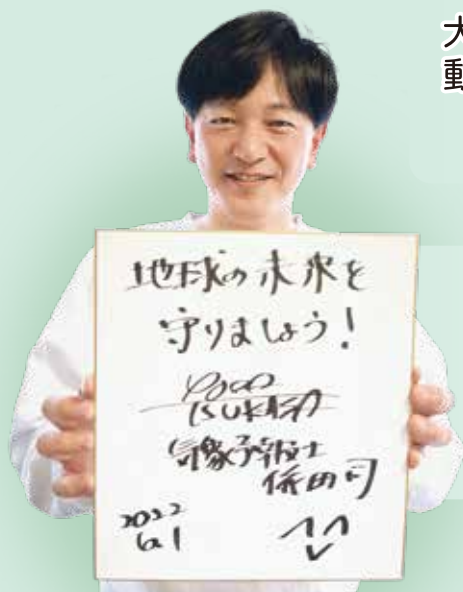 大
動
地球の未来を
守りましょう!
気象予報士
依田司
2022
6.1